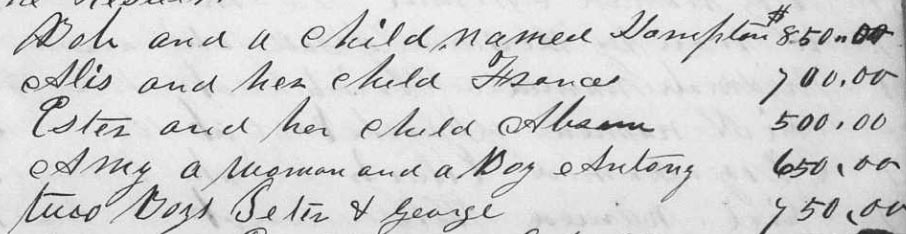 Bob and a child named Hampton $850.00
Alis and her child Frances 700.00
Ester and her child 500.00
Amy a woman and a Boy Antony 650.00
two Boys Peter & George 750.00